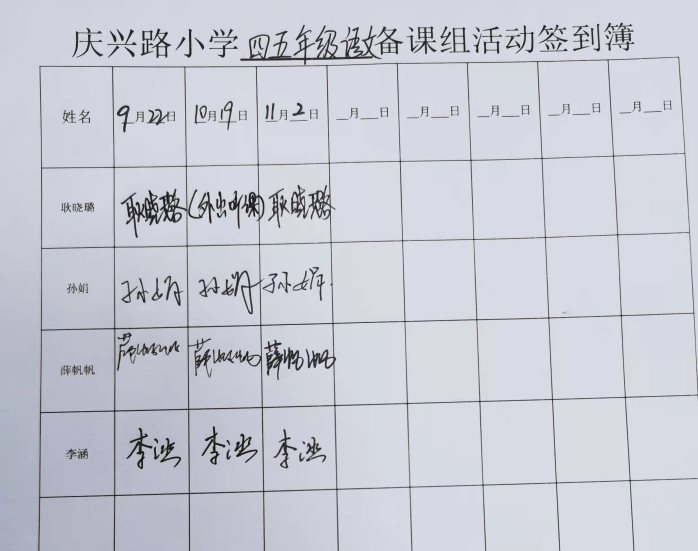 庆兴路小学四五年级语文备课组活动签到簿
姓名 9月22日 10月19日 11月2日 __月___日 __月___日 __月___日 __月___日 __月___日
耿晓璐 耿晓璐 (外出听课) 耿晓璐
孙娟 孙娟 孙娟 孙娟
薛帆帆 薛帆帆 薛帆帆 薛帆帆
李涵 李涵 李涵 李涵